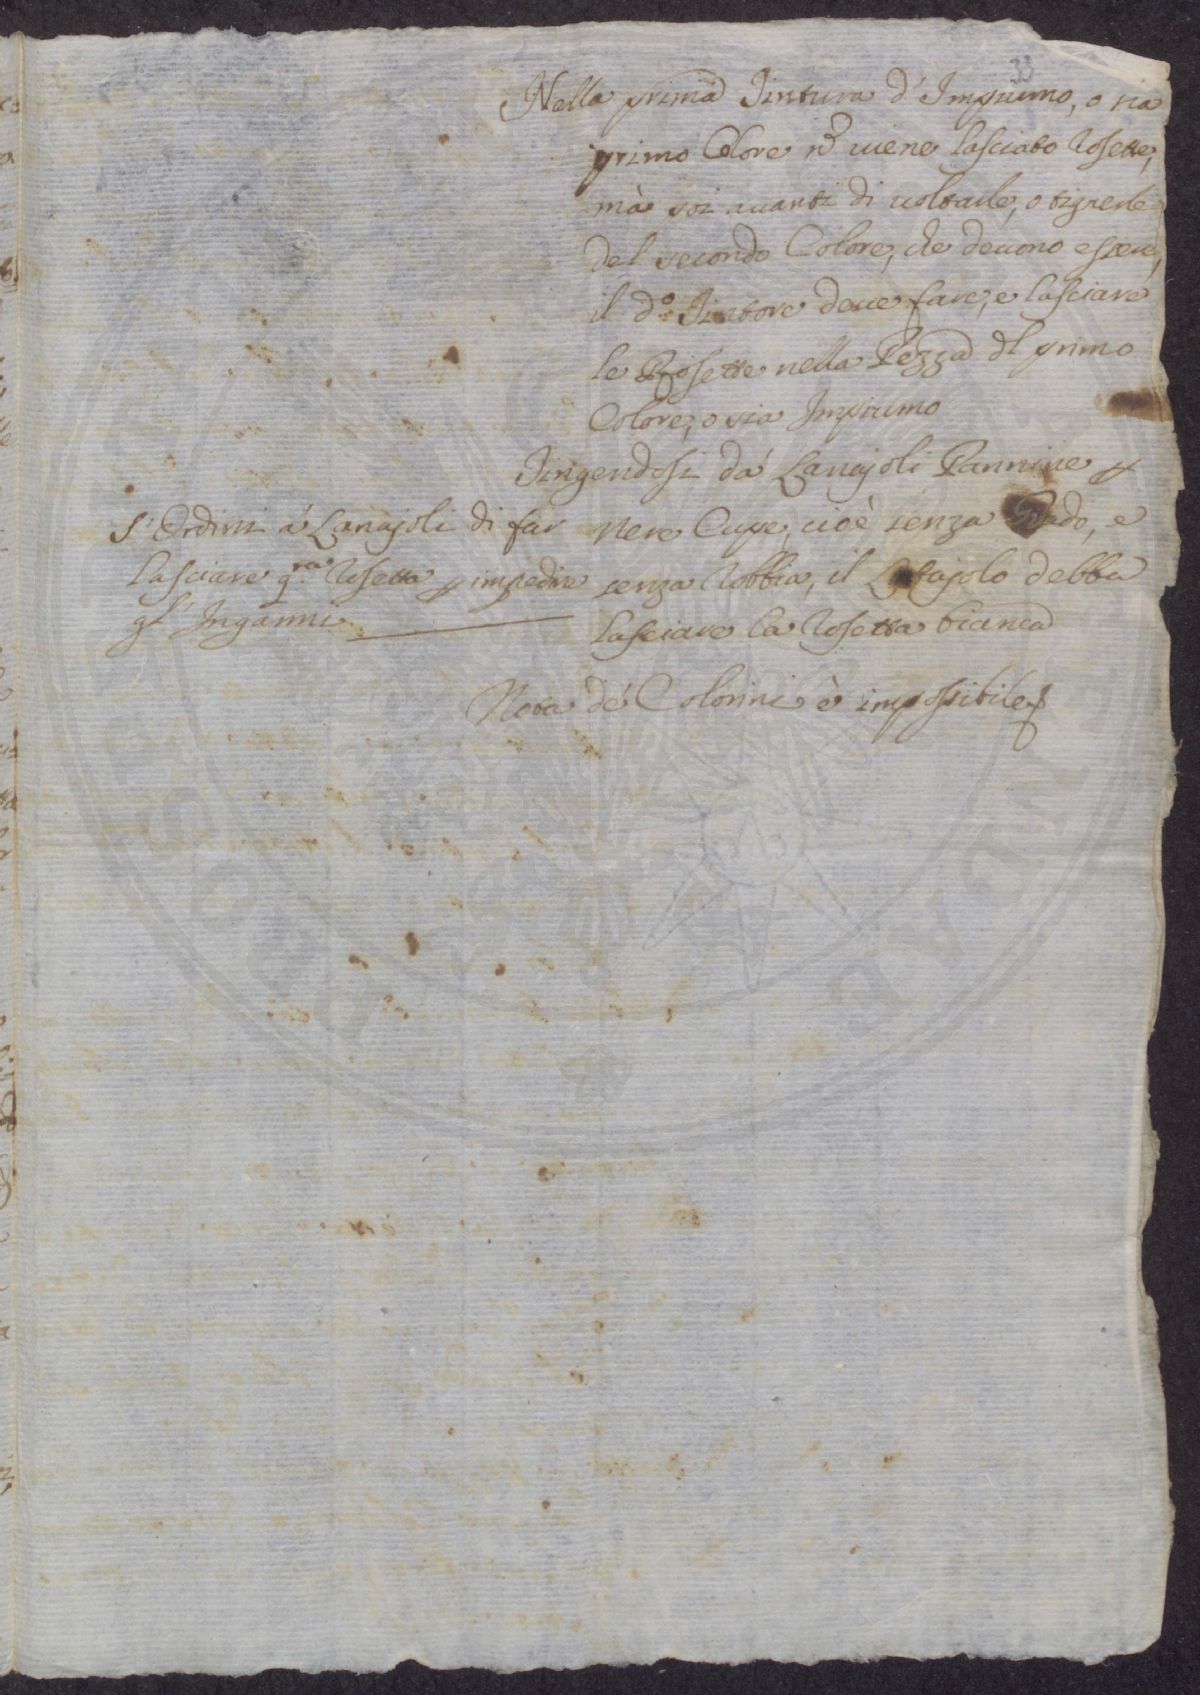 33
Nella prima Tintura d'Impiumo, o sia
primo Colore nō viene lasciato Rosette,
mà poi avanti di voltarle, o tignerle
del secondo Colore, che devono essere,
il d.º Tintore deve fare, e lasciare
le Rosette nella Pezza del primo
Colore, o sia Impiumo
Tingendosi dà Lanajoli Pannine p
nere Cupe, cioè senza Guado, e
senza Robbia, il Lanajolo debba
lasciare la Rosetta bianca
S'Ordini à Lanajoli di far
lasciare q.ta Rosetta p impedire
gl'Inganni
Nota de' Colorini è impossibile